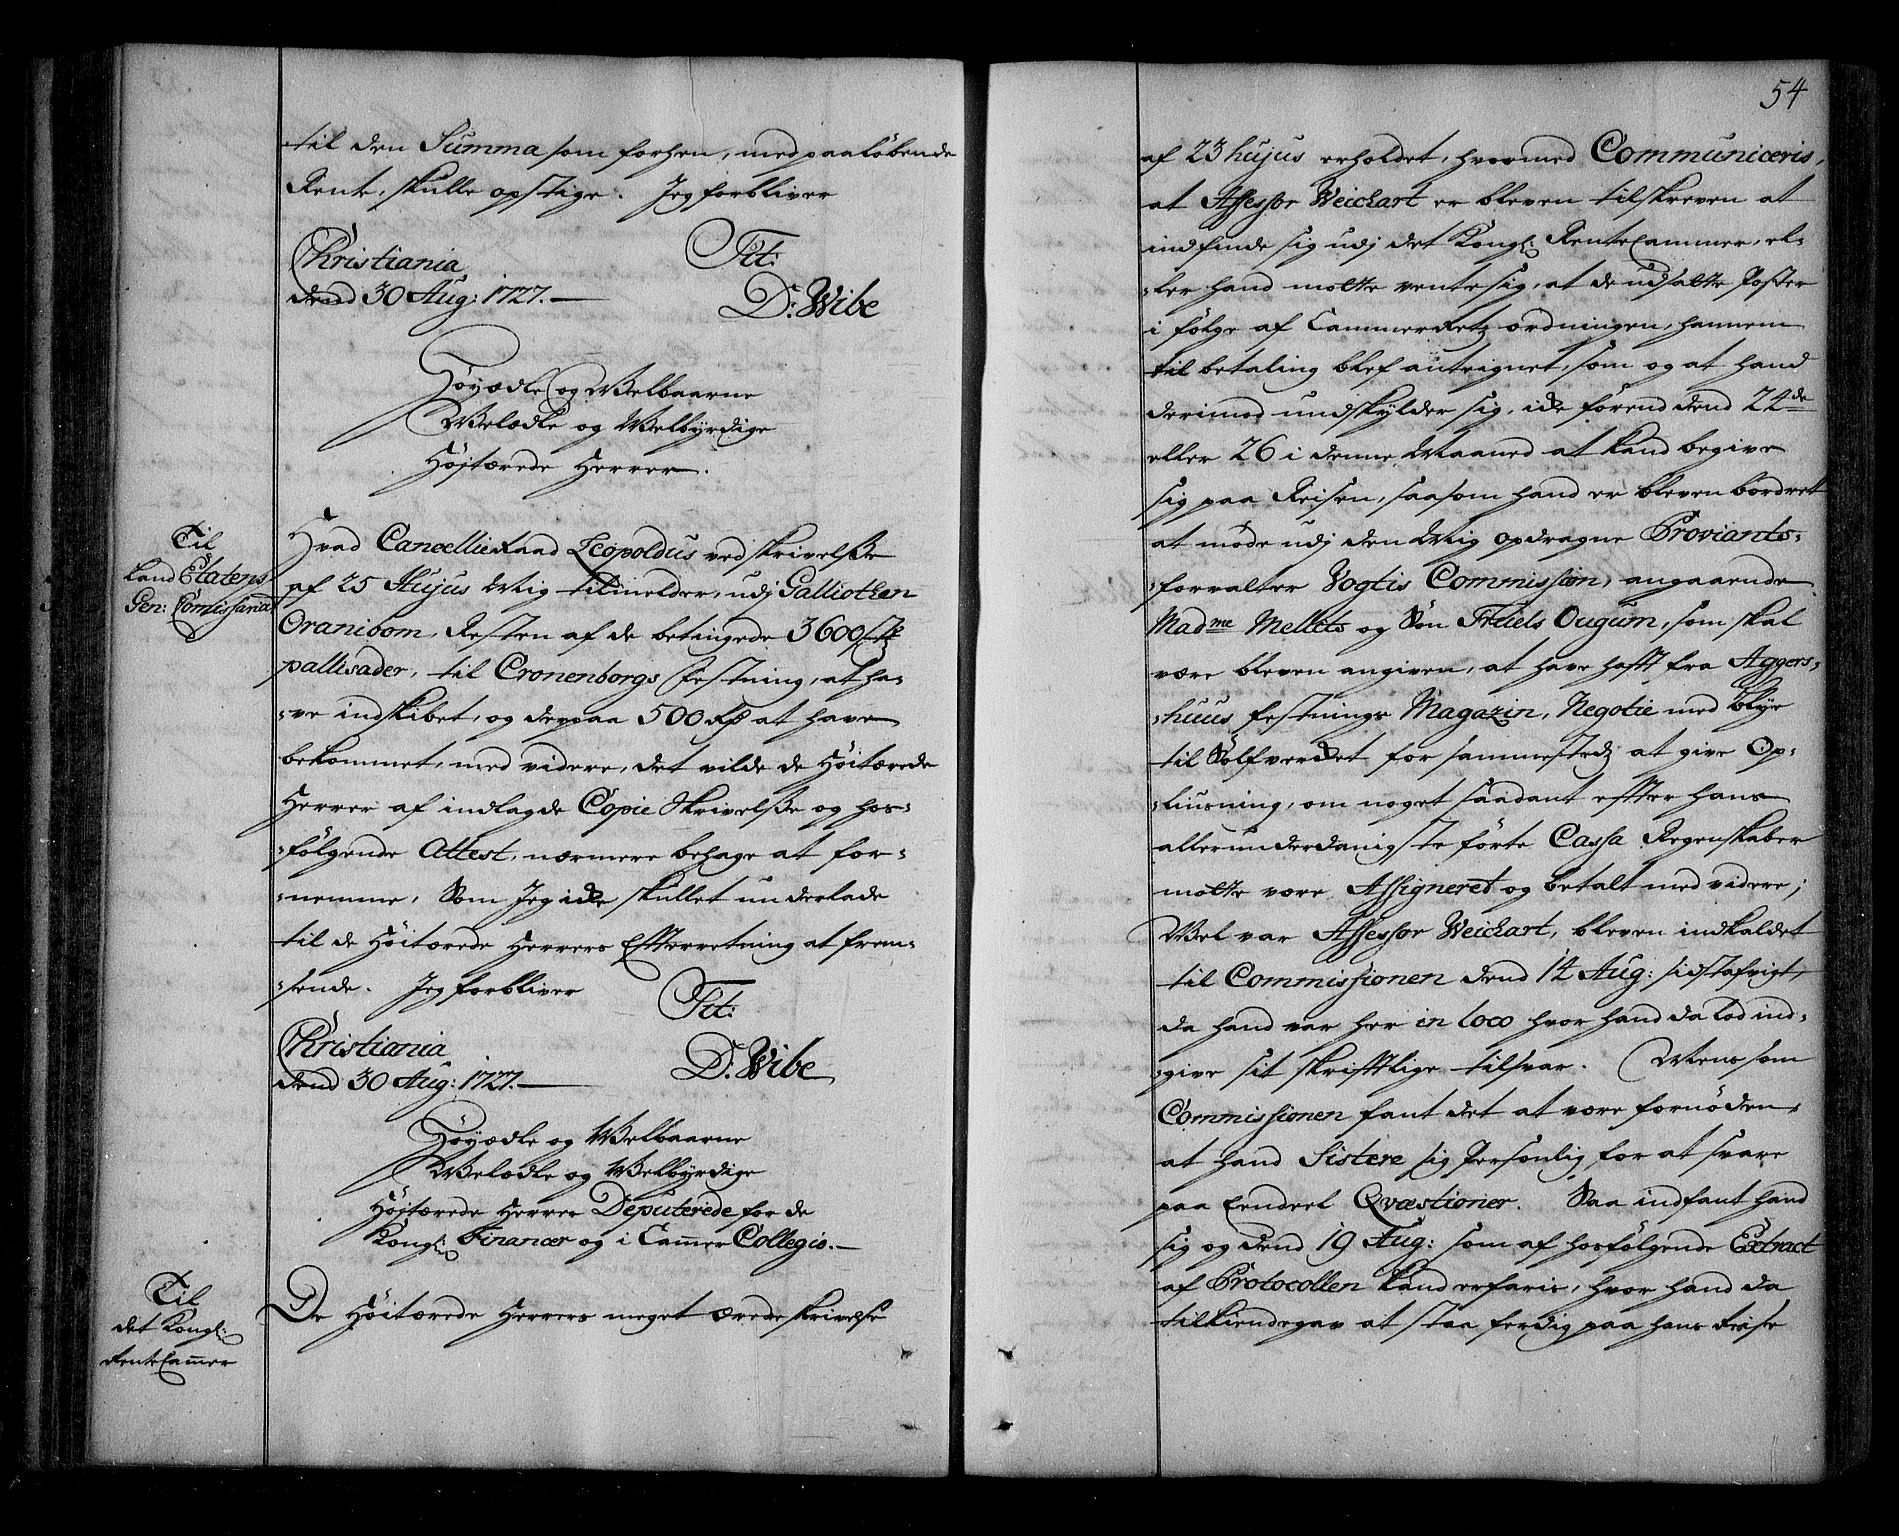 til den Summa som forhen, med paaløbende
Rente, skulle opstige. Jeg forbliver
Christiania Tit:
dend 30 Aug: 1727. D: Wibe
Høyædle og Velbaarne
Velædle og Velbyrdige
Højtærede Herrer.
Til
Land Etatens
Gen: Comissariat
Hvad Cancellie Raad Leopoldus ved skrivelße
af 25 Hujus Mig tilmelder, udj Galliothen
Oranibom, Resten af de betingede 3600 stk
pallisader, til Cronenborgs Festning, at ha-
-ve indskibet, og derpaa 500 Rd at have
bekommet, med videre, det vilde de Høitærede
Herrer af indlagde Copie Skrivelße og hos-
-følgende Attest, nærmere behage at for-
-nemme, Som Jeg icke skullet underlade
til de Høitærede Herrers Effterretning at frem-
-sende. Jeg forbliver
Christiania Tit:
dend 30 Aug: 1727. D: Wibe
Høyædle og Velbaarne
Velædle og Velbyrdige
Højtærede Herrer Deputerede for de
Kongl: Financer og i Cammer Collegio.
Til
det Kongl:
Rente Cammer
De Høitærede Herrers meget ærede skrivelse
54
af 23 hujus erholdet, hvormed Communiceris,
at Assessor Weichart er bleven tilskreven at
indfinde sig udj det Kongl: Rente Cammer, el-
-ler hand motte vente sig, at de udsatte Poster
i følge af Cammer Retz ordningen, hannem
til betaling blef anteignet, som og at hand
derimod undskylder sig, icke førend dend 22de
eller 26 i denne Maaned at kand begive
sig paa Reisen, saasom hand er bleven bordret
at møde udj den Mig opdragne Proviants-
-forvalter Vogtis Commission, angaaende
Madme Mellits og Søn Friels Ougum, som skal
være bleven angiven, at have hafft fra Aggers-
-huus Festnings Magazin, Negotie med blye
til Sølfverket for sammestedz at give Op-
-liusning, om noget saadant effter hans
allerunderdanigste førte Cassa Regenskaber
motte være Assigneret og betalt med videre;
Vel var Assessor Weichart, bleven indkaldet
til Commissionen dend 14 Aug: sidstafvigt,
da hand var her in loco hvor hand da lod ind-
-give sit skrifftlige tilsvar. Mens som
Commissionen fant det at være fornøden,
at hand Sistere sig Personlig for at svare
paa Eendeel Qvæstioner. Saa indfant hand
sig og dend 19 Aug: som af hosfølgende Extract
af Protocollen kand erfaris, hvor hand da
tilkiendegav at staa ferdig paa hans Reise